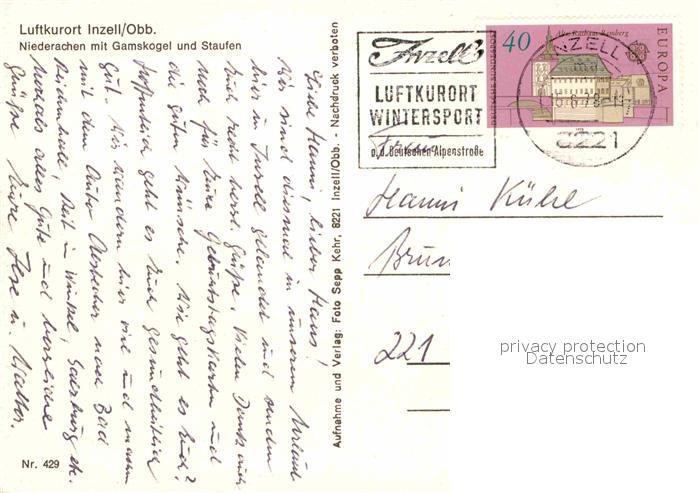 Luftkurort Inzell/Obb.
Niederachen mit Gamskogel und Staufen
Liebe Hanni, lieber Hans!
Wir sind diesmal in unserem Urlaub
hier in Inzell gelandet und senden
Euch recht herzl. Grüße. Vielen Dank auch
noch für Eure Geburtstagskarten und
die guten Wünsche. Wie geht es Euch?
Hoffentlich geht es Euch gesundheitlich
gut. Wir wandern hier viel und machen
mit dem Auto Abstecher nach Bad
Reichenhall, Reit in Winkel, Salzburg etc.
Nochmals alles Gute und herzliche
Grüße Eure Ilse u. Walter.
Nr. 429
Aufnahme und Verlag: Foto Sepp Kehr, 8221 Inzell/Obb. - Nachdruck verboten
Inzell
LUFTKURORT
WINTERSPORT
a.d. Deutschen Alpenstraße
40
Altes Rathaus Bamberg
DEUTSCHE BUNDESPOST
EUROPA
INZELL
8221
Frau
Hanni Kühl
Brun
221
privacy protection
Datenschutz